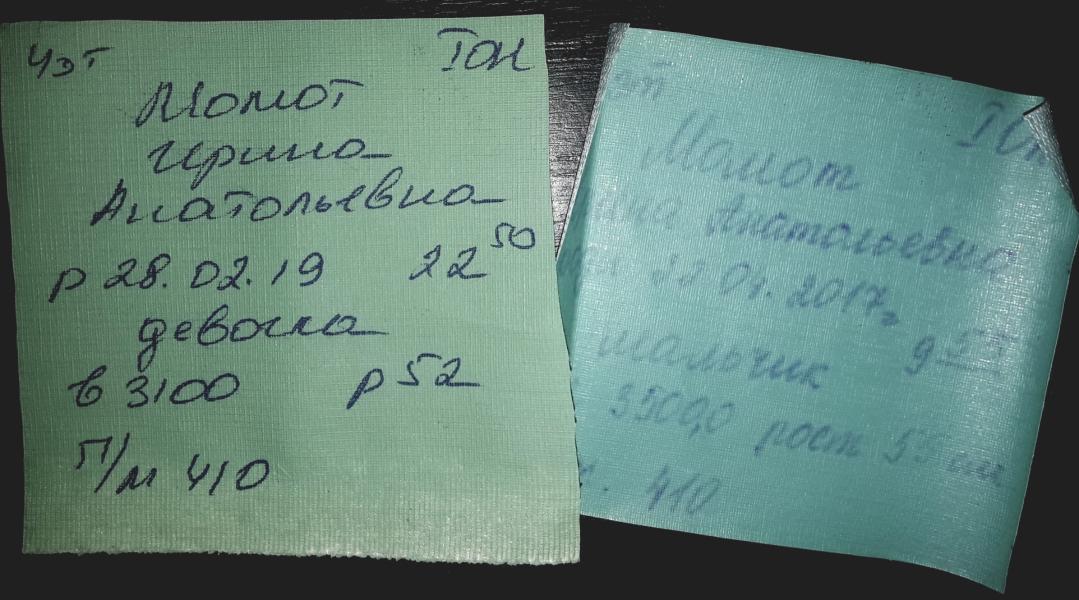 4 эт I ОН
Момот
Ирина
Анатольевна
р 28.02.19 22 50
девочка
в 3100 р 52
П/м 410
эт
Момот
Анатольевна
2017г
мальчик
3500,0 рост 55 см
410